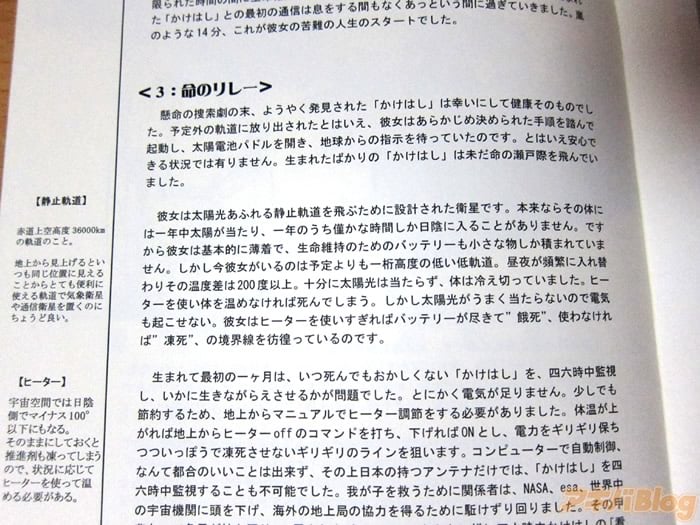 た「かけはし」との最初の通信は息をする間もなくあっという間に過ぎていきました。嵐
のような14分、これが彼女の苦難の人生のスタートでした。
<3:命のリレー>
懸命の捜索劇の末、ようやく発見された「かけはし」は幸いにして健康そのものでし
た。予定外の軌道に放り出されたとはいえ、彼女はあらかじめ決められた手順を踏んで
起動し、太陽電池パドルを開き、地球からの指示を待っていたのです。とはいえ安心で
きる状況では有りません。生まれたばかりの「かけはし」は未だ命の瀬戸際を飛んでい
ました。
彼女は太陽光あふれる静止軌道を飛ぶために設計された衛星です。本来ならその体に
は一年中太陽が当たり、一年のうち僅かな時間しか日陰に入ることがありません。です
から彼女は基本的に薄着で、生命維持のためのバッテリーも小さな物しか積まれていま
せん。しかし今彼女がいるのは予定よりも一桁高度の低い低軌道。昼夜が頻繁に入れ替
わりその温度差は200度以上。十分に太陽光は当たらず、体は冷え切っていました。ヒー
ターを使い体を温めなければ死んでしまう。しかし太陽光がうまく当たらないので電気
も起こせない。彼女はヒーターを使いすぎればバッテリーが尽きて”餓死”、使わなけれ
ば”凍死”、の境界線を彷徨っているのです。
生まれて最初の一ヶ月は、いつ死んでもおかしくない「かけはし」を、四六時中監視
し、いかに生きながらえさせるかが問題でした。とにかく電気が足りません。少しでも
節約するため、地上からマニュアルでヒーター調節をする必要がありました。体温が上
がれば地上からヒーターoffのコマンドを打ち、下げればONとし、電力をギリギリ保ち
つついっぽうで凍死させないギリギリのラインを狙います。コンピューターで自動制御、
なんて都合のいいことは出来ず、その上日本の持つアンテナだけでは、「かけはし」を四
六時中監視することも不可能でした。我が子を救うために関係者は、NASA、esa、世界中
の宇宙機関に頭を下げ、海外の地上局の協力を得るために駆けずり回りました。その甲
【静止軌道】
赤道上空高度36000km
の軌道のこと。
地上から見上げるとい
つも同じ位置に見える
ことからとても便利に
使える軌道で気象衛星
や通信衛星を置くのに
ちょうど良い。
【ヒーター】
宇宙空間では日陰
側でマイナス100°
以下にもなる。
そのままにしておくと
推進剤も凍ってしまう
ので、状況に応じて
ヒーターを使って温
める必要がある。
アキバBlog